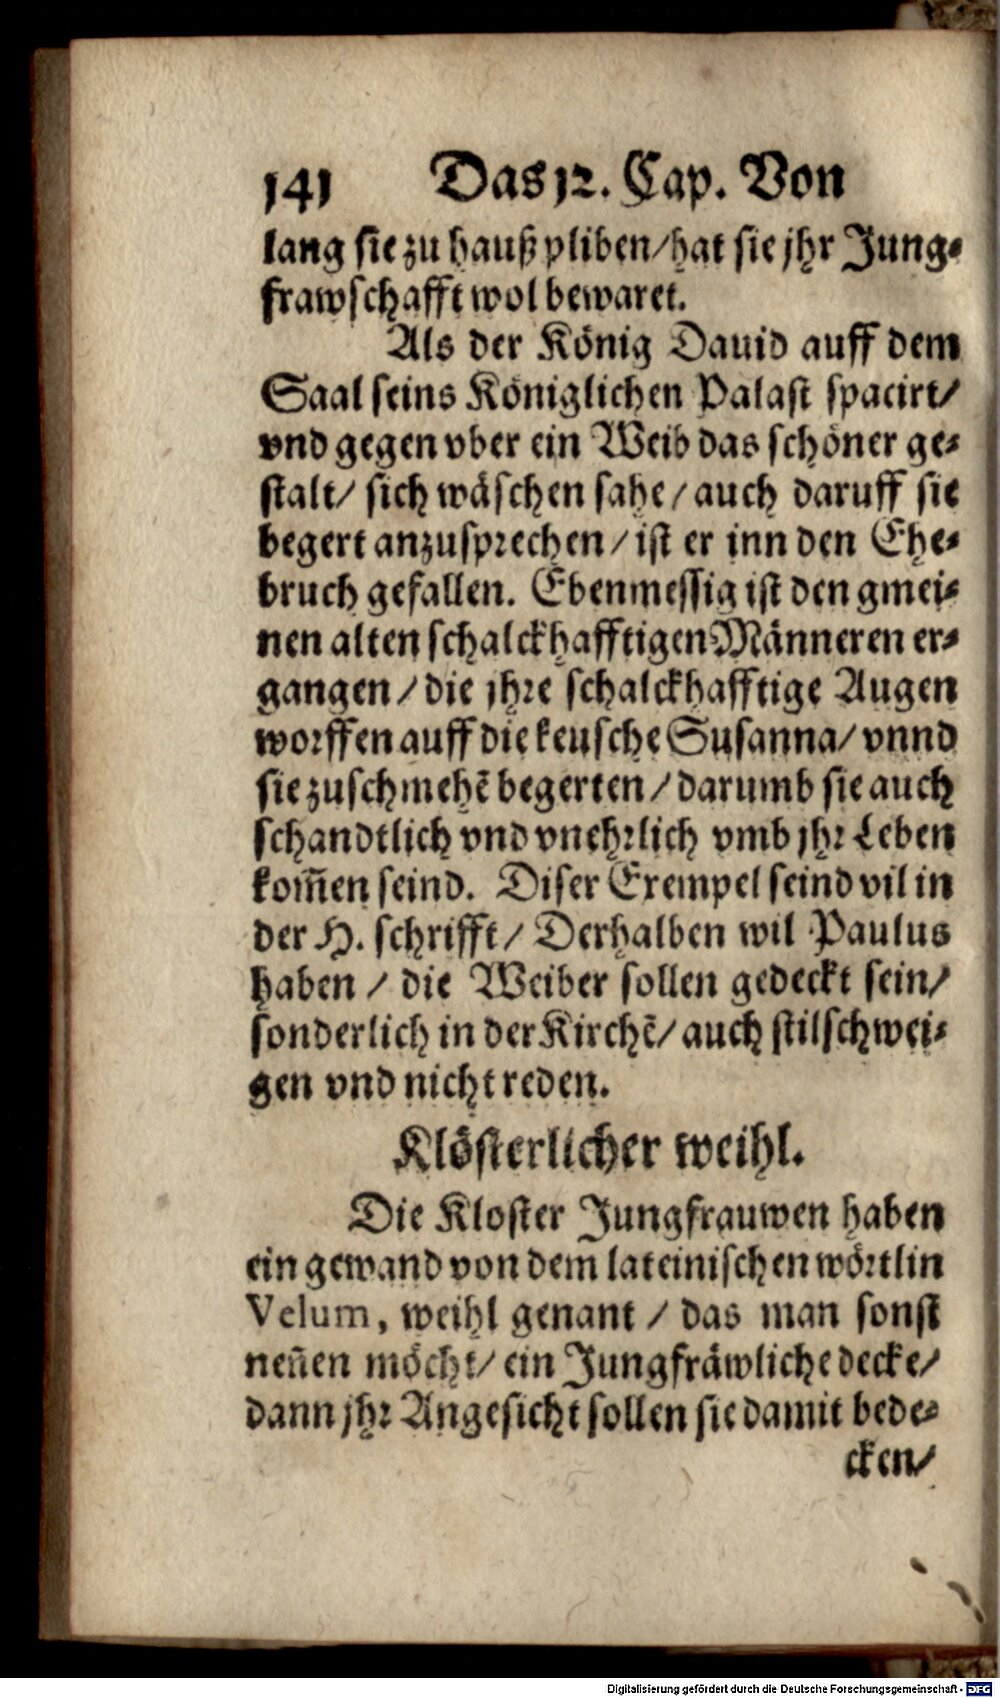 141 Das 12. Cap. Von
lang sie zu hauß pliben/ hat sie jhr Jung-
frawschafft wol bewaret.
Als der König Dauid auff dem
Saal seins Königlichen Palast spacirt/
vnd gegen vber ein Weib das schöner ge-
stalt/ sich wäschen sahe/ auch daruff sie
begert anzusprechen/ ist er inn den Ehe-
bruch gefallen. Ebenmessig ist den gmei-
nen alten schalckhafftigen Männeren er-
gangen/ die jhre schalckhafftige Augen
worffen auff die keusche Susanna/ vnnd
sie zuschmehẽ begerten/ darumb sie auch
schandtlich vnd vnehrlich vmb jhr Leben
kom̃en seind. Diser Exempel seind vil in
der H. schrifft/ Derhalben wil Paulus
haben/ die Weiber sollen gedeckt sein/
sonderlich in der Kirchẽ/ auch stilschwei-
gen vnd nicht reden.
Klösterlicher weihl.
Die Kloster Jungfrauwen haben
ein gewand von dem lateinischen wörtlin
Velum, weihl genant/ das man sonst
neñen möcht/ ein Jungfräwliche decke/
dann jhr Angesicht sollen sie damit bede-
cken/
Digitalisierung gefördert durch die Deutsche Forschungsgemeinschaft - DFG